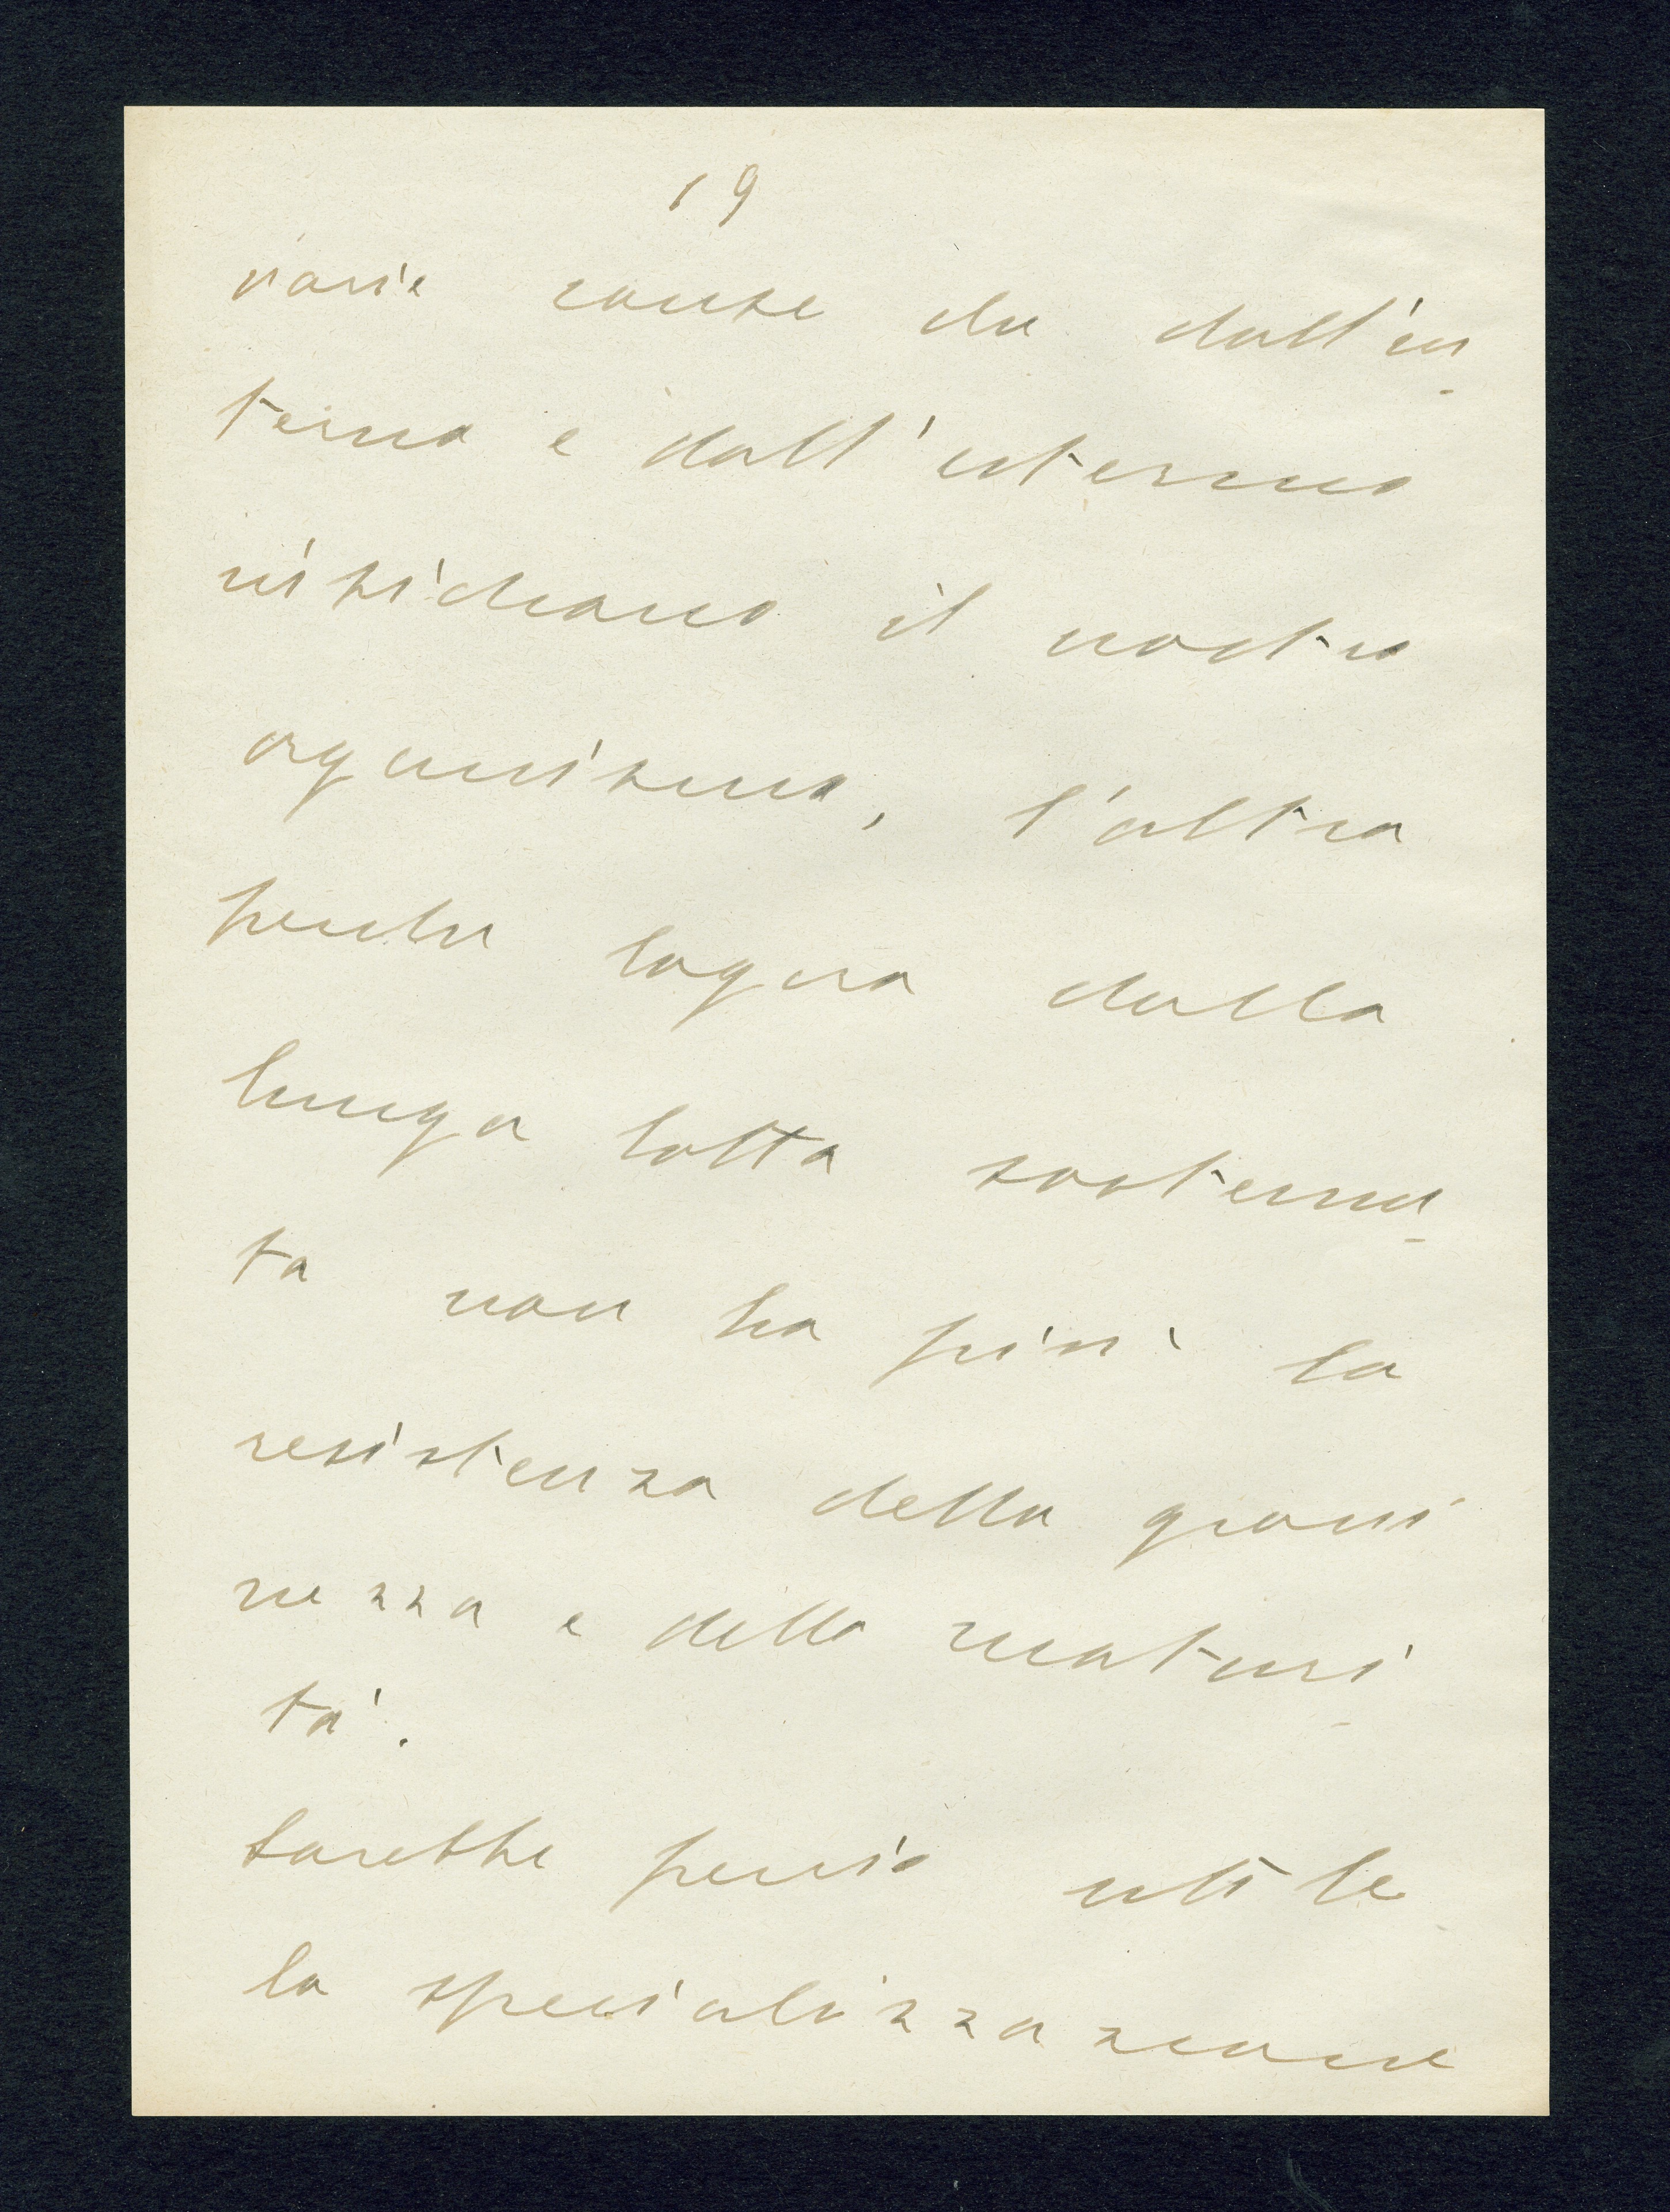 19
varie cause che dall'in-
terno e dall'esterno
insidiano il nostro
organismo, l'altra
perchè logora dalla
lunga lotta sostenu-
ta non ha più la
resistenza della giovi
nezza e della maturi-
tà.
Sarebbe perciò utile
la specializzazione